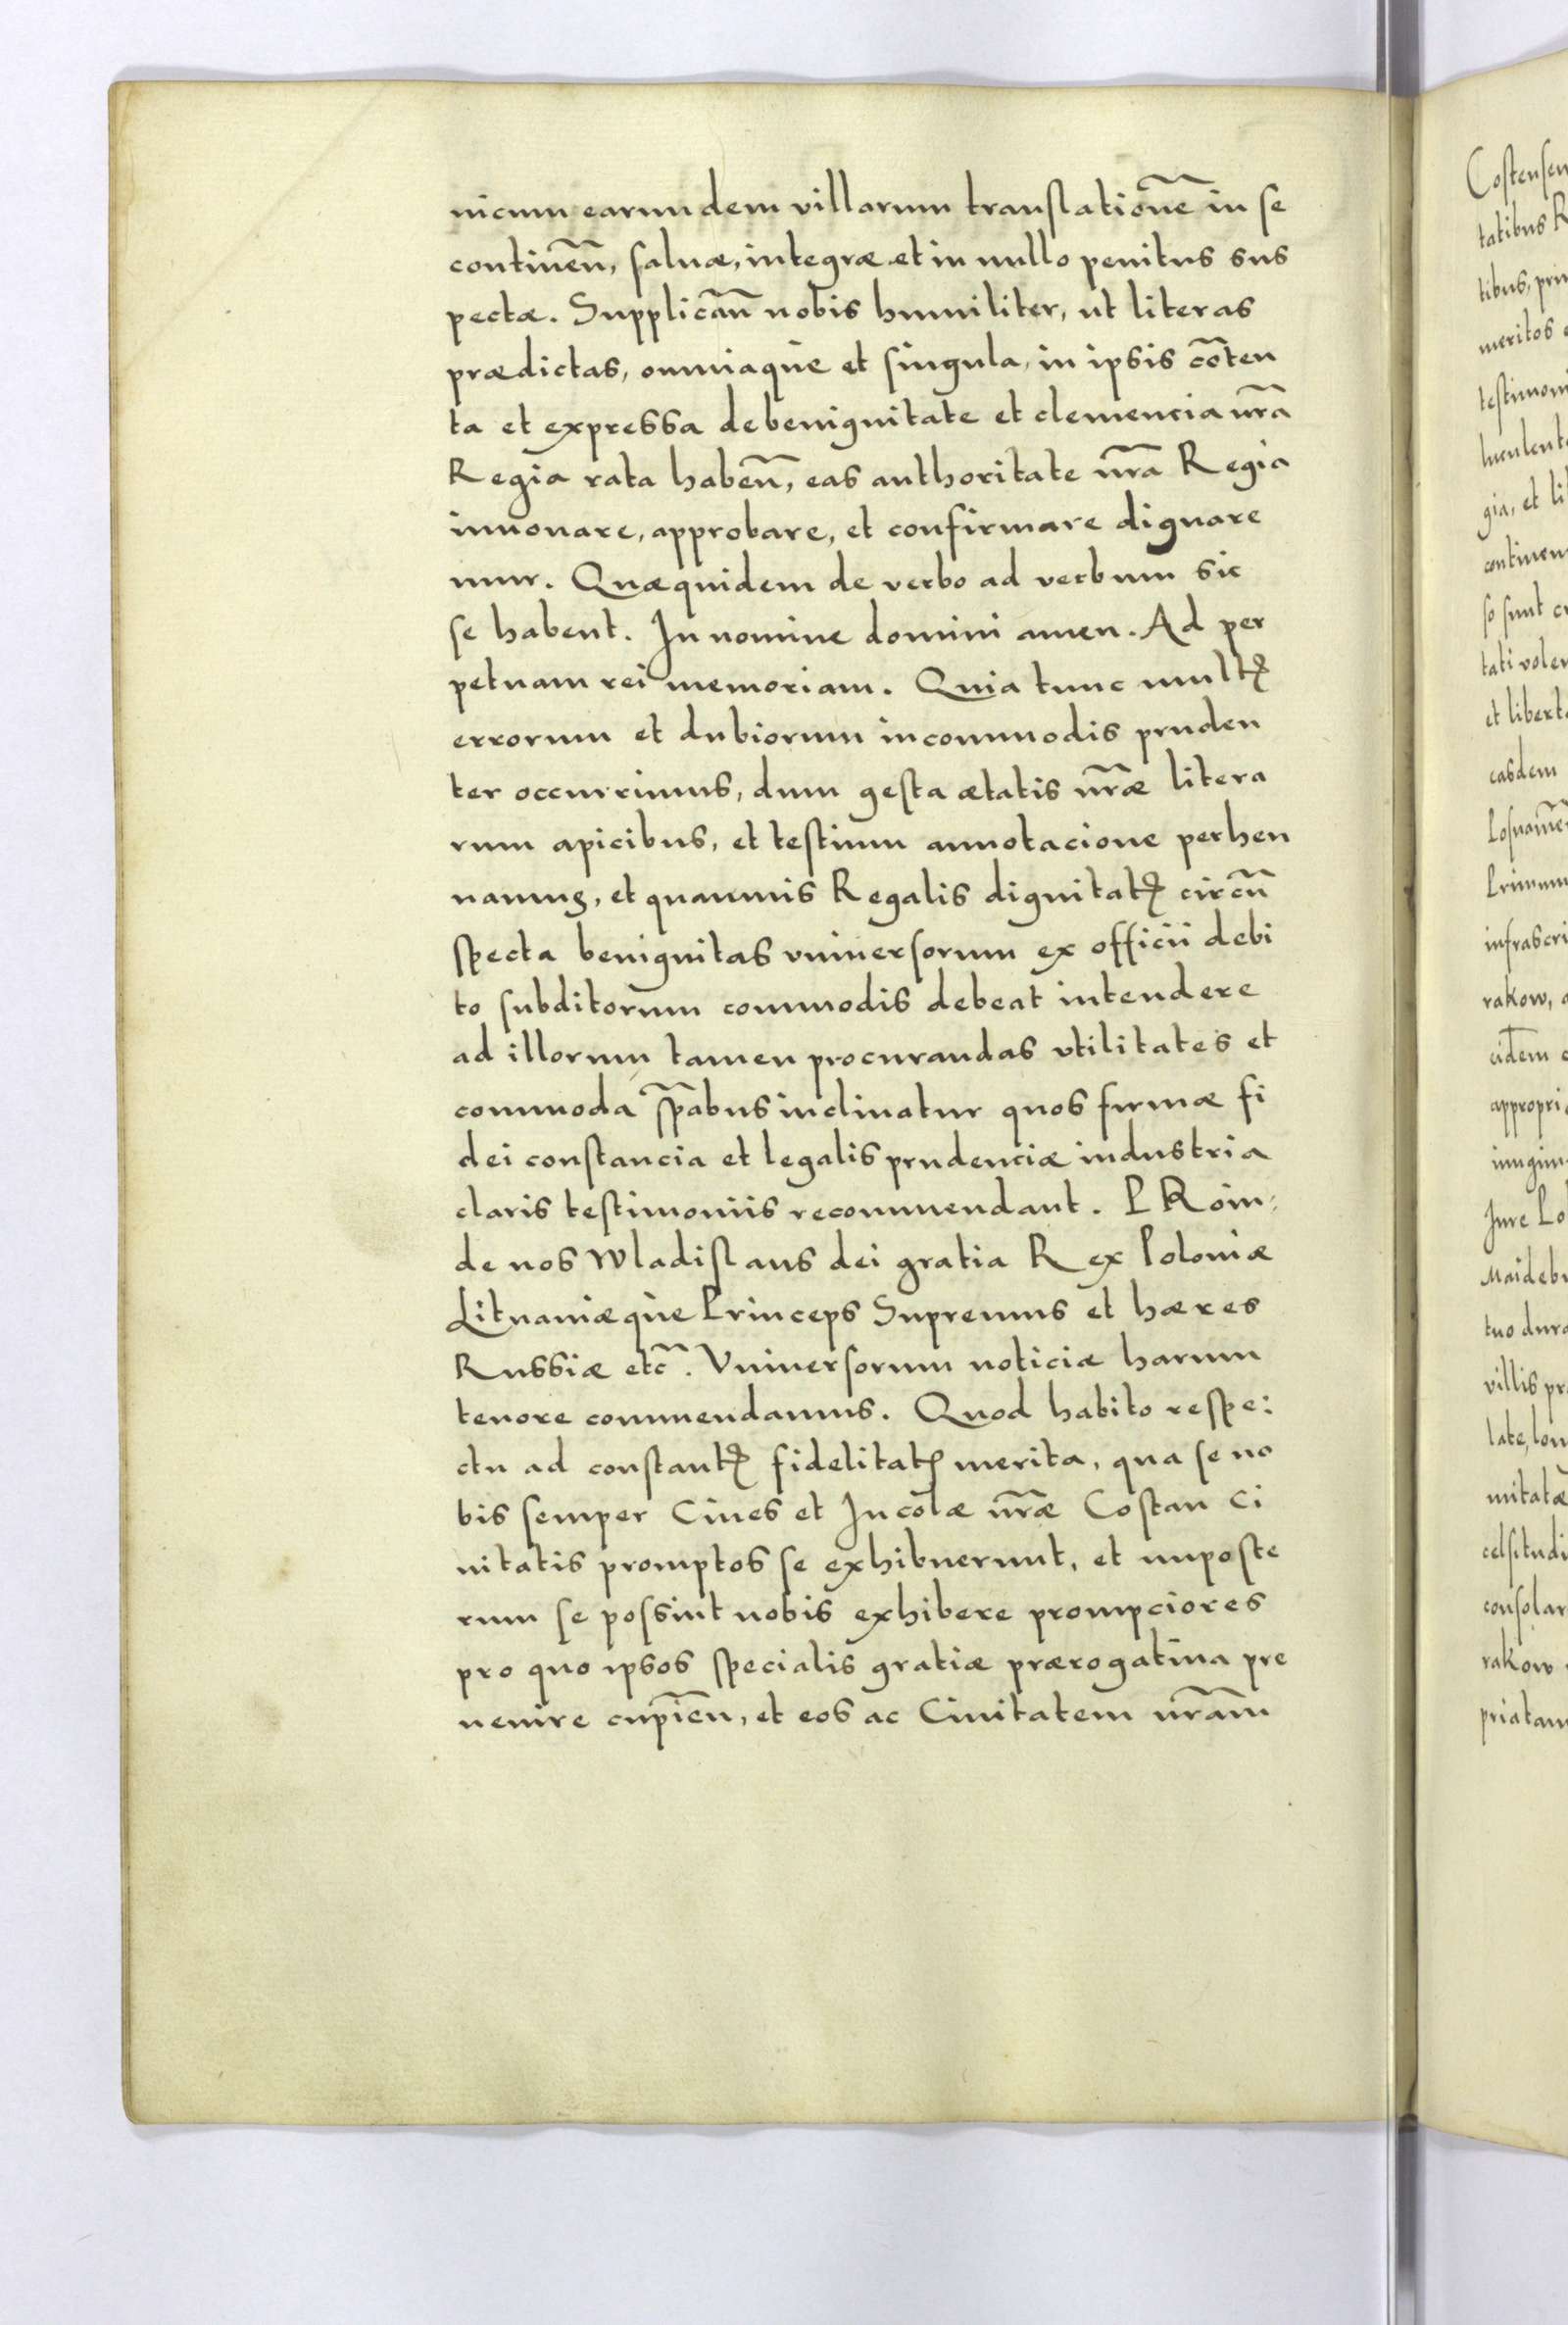 nicum earundem villarum translationē in se
continēn, saluæ, integræ et in nullo penitus sus
pectæ. Supplicān nobis humiliter, ut literas
prædictas, omniaque et singula, in ipsis cōten
ta et expressa de benignitate et clemencia nr̄a
Regia rata habēn, eas authoritate nr̄a Regia
innouare, approbare, et confirmare dignare
mur. Quæquidem de verbo ad verbum sic
se habent. In nomine domini amen. Ad per
petuam rei memoriam. Quia tunc multꝭ
errorum et dubiorum incommodis pruden
ter occurrimus, dum gesta ætatis nr̄æ litera
rum apicibus, et testium annotacione perhen
namus, et quamuis Regalis dignitatꝭ circū
specta benignitas vniuersorum ex officii debi
to subditorum commodis debeat intendere
ad illorum tamen procurandas vtilitates et
commoda sp̄abus inclinatur quos firmæ fi
dei constancia et legalis prudenciæ industria
claris testimoniis recommendant. PRoin:
de nos Wladislaus dei gratia Rex Poloniæ
Lituaniæque Princeps Supremus et hæres
Russiæ etc̄. Vniuersorum noticiæ harum
tenore commendamus. Quod habito respe:
ctu ad constantꝭ fidelitatꝭ merita, qua se no
bis semper Ciues et Incolæ nr̄æ Costan Ci
uitatis promptos se exhibuerunt, et imposte
rum se possint nobis exhibere prompciores
pro quo ipsos specialis gratiæ prærogatiua pre
uenire cupiēn, et eos ac Ciuitatem nr̄am
Costensen
tatibus R
tibus, pri
meritos
testimoni
luculent
gia, et li
continen
so sunt
tati volen
et libert
easdem
Posnamē
Primum
infrascri
rakow,
eidem
appropri
iungim
Jure Po
Maideb
tuo dura
villis pr
late, lon
mitatæ
celsitudi
consolar
rakow
priatam